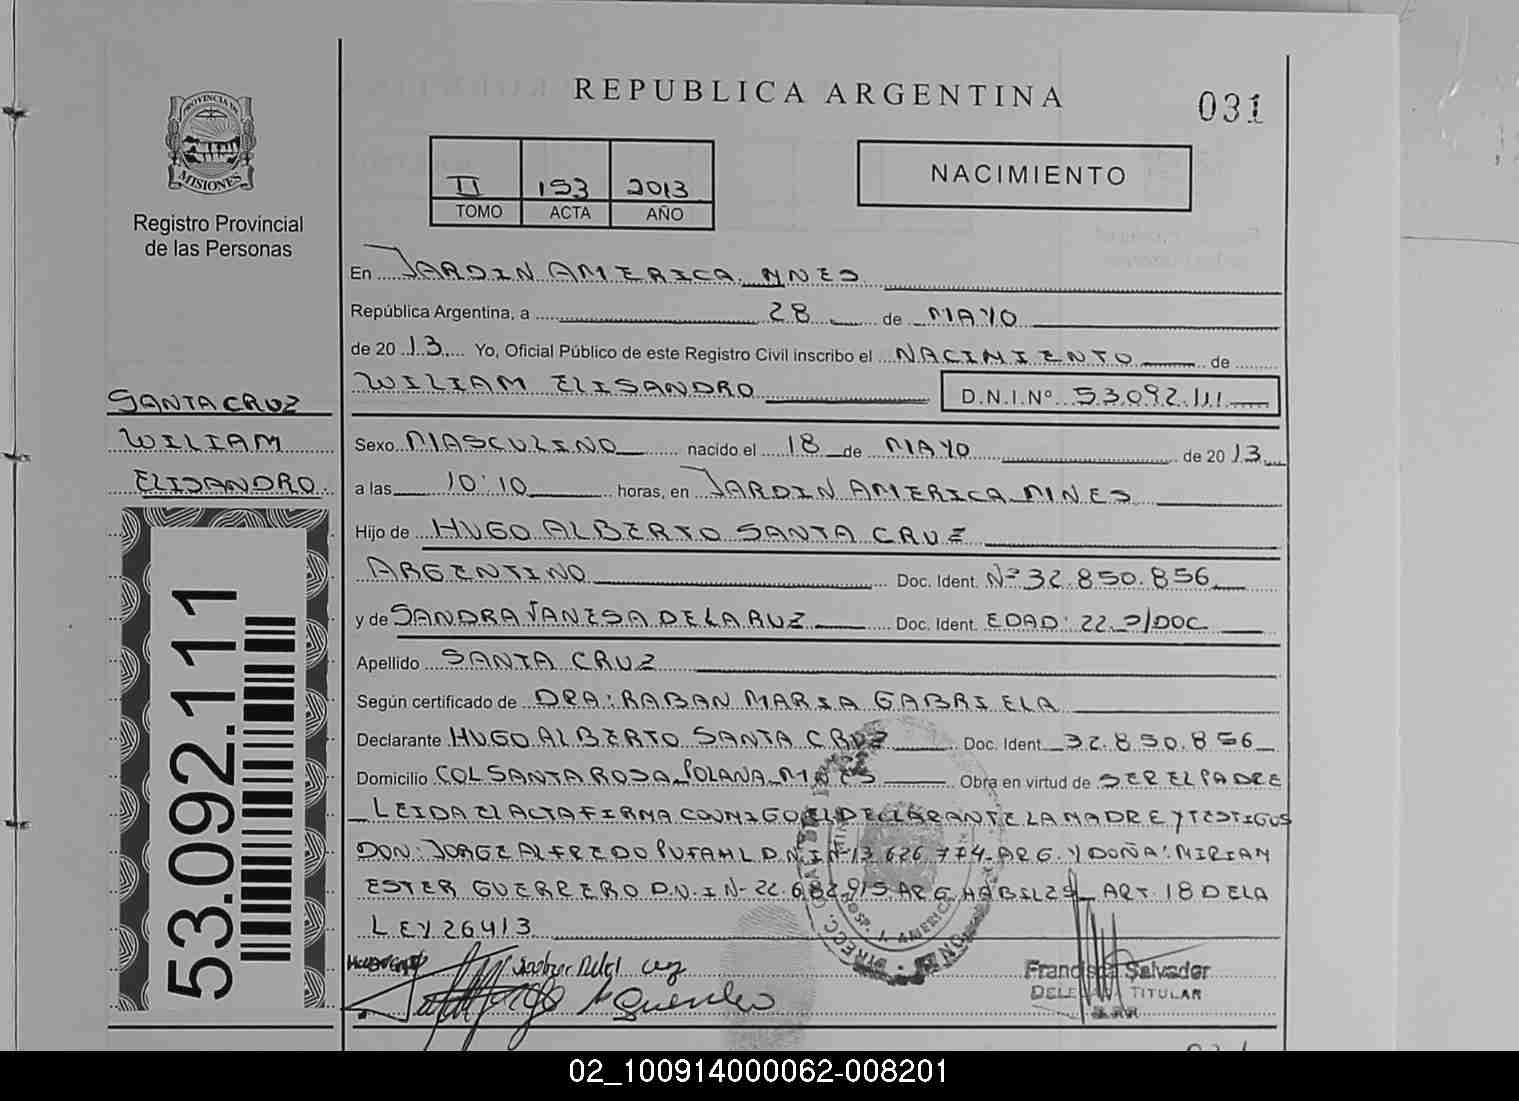 REPUBLICA ARGENTINA
031
PROVINCIA DE
MISIONES
Registro Provincial
de las Personas
II 153 2013
TOMO ACTA AÑO
NACIMIENTO
En JARDIN AMERICA MNES
República Argentina, a 28 de MAYO
de 2013 Yo, Oficial Público de este Registro Civil inscribo el NACIMIENTO de
WILIAM ELISANDRO D.N.I.Nº 53.092.111
SANTA CRUZ
WILIAM
ELISANDRO
53.092.111
Sexo MASCULINO nacido el 18 de MAYO de 2013
a las 10:10 horas, en JARDIN AMERICA MNES
Hijo de HUGO ALBERTO SANTA CRUZ
ARGENTINO Doc. Ident. Nº 32.850.856
y de SANDRA VANESA DE LA RUZ Doc. Ident. EDAD: 22 S/DOC
Apellido SANTA CRUZ
Según certificado de DRA: RABAN MARIA GABRIELA
Declarante HUGO ALBERTO SANTA CRUZ Doc. Ident. 32.850.856
Domicilio COL SANTA ROSA POLANA MNES Obra en virtud de SER EL PADRE
LEIDA EL ACTA FIRMA CONMIGO EL DECLARANTE LA MADRE Y TESTIGOS
DON: JORGE ALFREDO PUTAHL D.N.I N-13.626.774-ARG. Y DOÑA: MIRIAM
ESTER GUERRERO D.N.I N-22.682.915 ARG HABILES ART. 18 DE LA
LEY 26413
Francisca Salvador
DELEGADA TITULAR
02_100914000062-008201